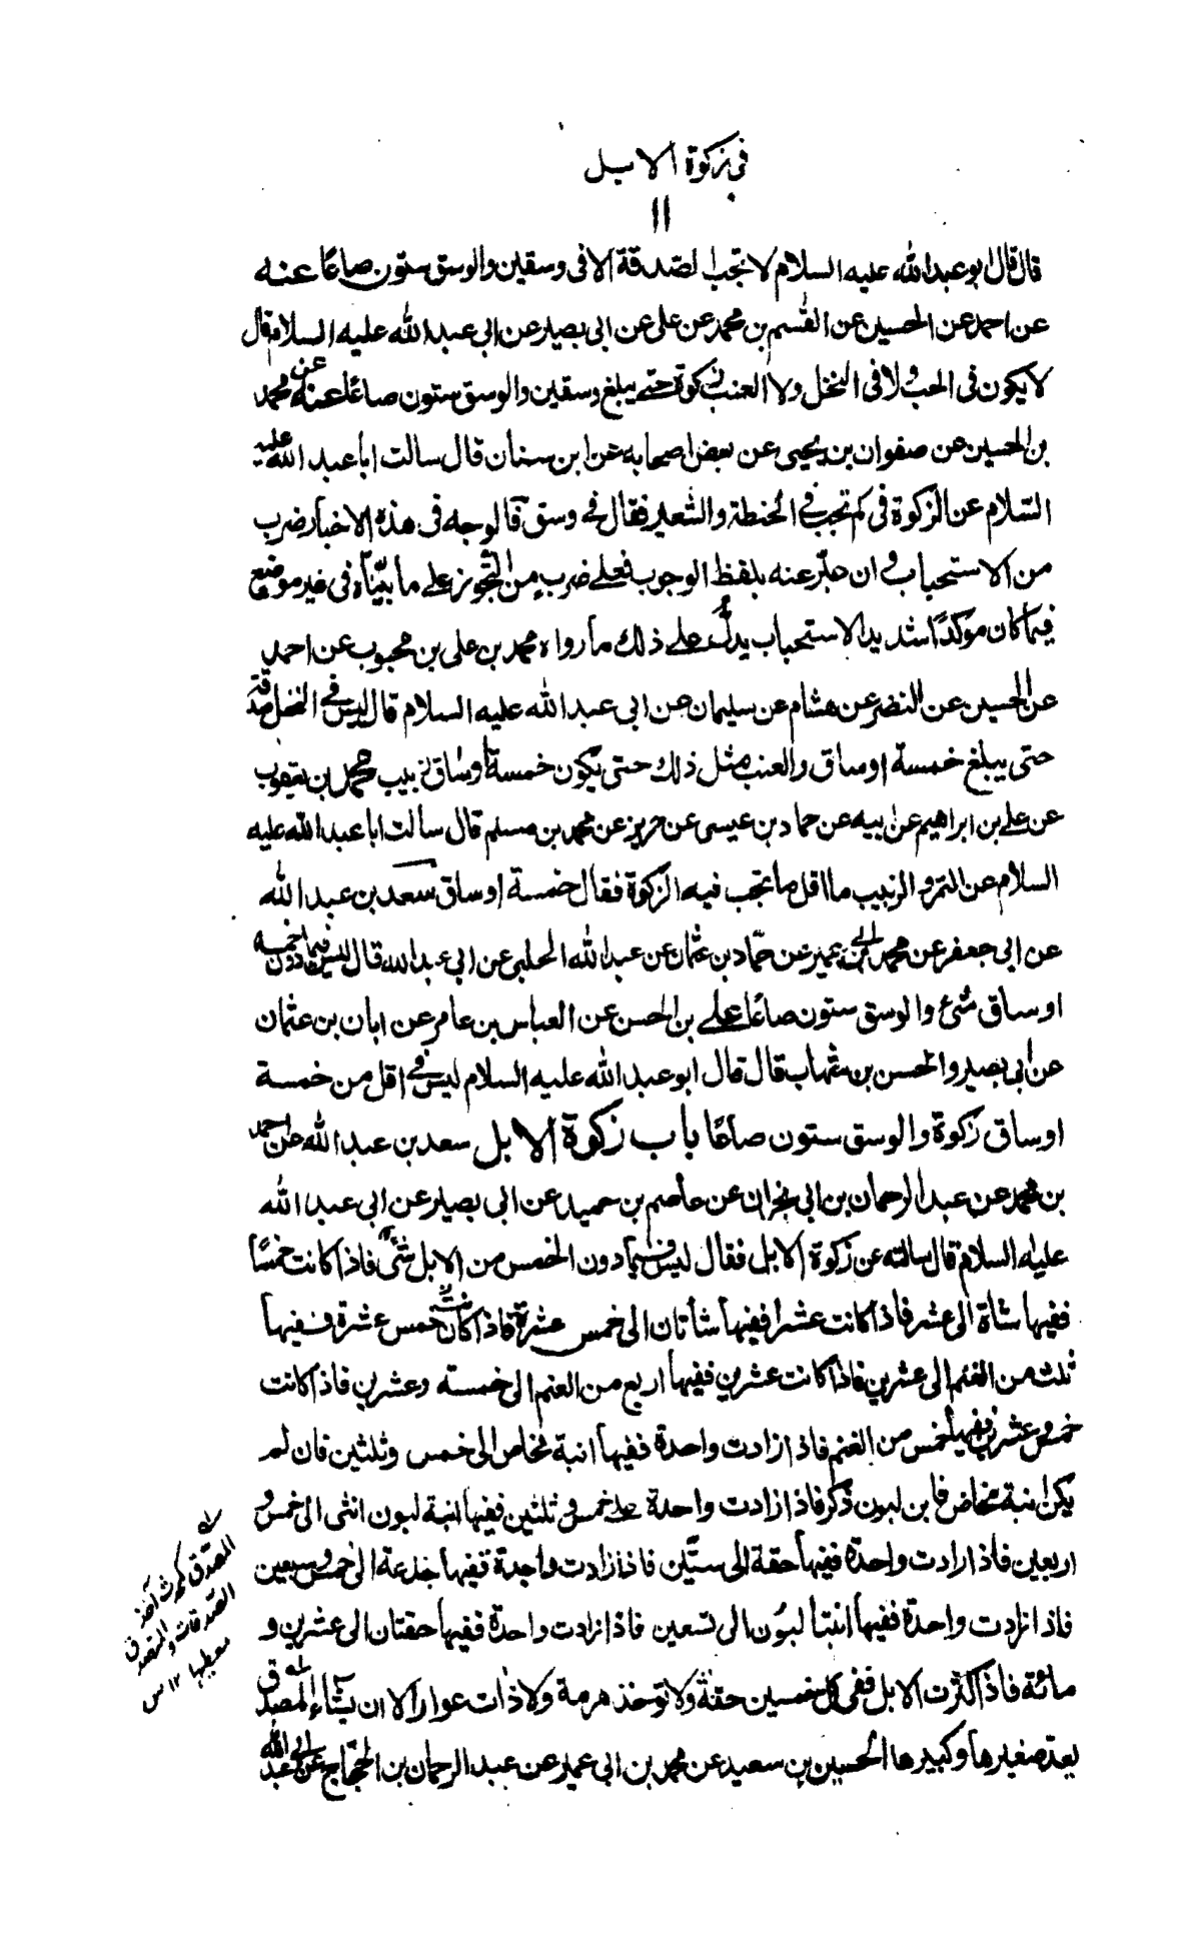 في زكوة الابل
١١
قال قال ابو عبد الله عليه السلام لا تجب الصدقة الا في وسقين والوسق ستون صاعًا عنه
عن احمد عن الحسين عن القسم بن محمد عن علي عن ابي بصير عن ابي عبد الله عليه السلام قال
لا يكون في الحب ولا في النخل ولا العنب زكوة حتى يبلغ وسقين والوسق ستون صاعًا عنه عن محمد
بن الحسين عن صفوان بن يحيى عن بعض اصحابه عن ابن سنان قال سالت ابا عبد الله عليه
السلام عن الزكوة في كم تجب في الحنطة والشعير فقال في وسق فالوجه في هذه الاخبار ضرب
من الاستحباب و ان عبّر عنه بلفظ الوجوب فعلى ضربٍ من التجوز على ما بيّناه في غير موضع
فيما كان موكدًا شديد الاستحباب يدلُّ على ذلك ما رواه محمد بن علي بن محبوب عن احمد
عن الحسين عن النضر عن هشام عن سليمان عن ابي عبد الله عليه السلام قال ليس في النخل صدقة
حتى يبلغ خمسة اوساق والعنب مثل ذلك حتى يكون خمسة اوساق زبيب محمد بن يعقوب
عن علي بن ابراهيم عن ابيه عن حماد بن عيسى عن حريز عن محمد بن مسلم قال سالت ابا عبد الله عليه
السلام عن التمر و الزبيب ما اقل ما تجب فيه الزكوة فقال خمسة اوساق سعد بن عبد الله
عن ابي جعفر عن محمد بن ابي عمير عن حمّاد بن عثمان عن عبد الله الحلبي عن ابي عبد الله قال ليس فيما دون خمسة
اوساق شئ والوسق ستون صاعًا علي بن الحسن عن العباس بن عامر عن ابان بن عثمان
عن ابي بصير والحسن بن شهاب قال قال ابو عبد الله عليه السلام ليس في اقل من خمسة
اوساق زكوة والوسق ستون صاعًا باب زكوة الابل سعد بن عبد الله عن احمد
بن محمد عن عبد الرحمان بن ابي نجران عن عاصم بن حميد عن ابي بصير عن ابي عبد الله
عليه السلام قال سالته عن زكوة الابل فقال ليس فيما دون الخمس من الابل شئ فاذا كانت خمسًا
ففيها شاة الى عشر فاذا كانت عشرا ففيها شاتان الى خمس عشرة فاذا كانت خمس عشرة ففيها
ثلث من الغنم الى عشرين فاذا كانت عشرين ففيها اربع من الغنم الى خمسة وعشرين فاذا كانت
خمس وعشرين ففيها خمس من الغنم فاذا زادت واحدة ففيها ابنة مخاض الى خمس وثلثين فان لم
يكن ابنة مخاض فابن لبون ذكر فاذا زادت واحدة على خمس و ثلثين ففيها ابنة لبون انثى الى خمس و
اربعين فاذا زادت واحدة ففيها حقة الى ستّين فاذا زادت واحدة ففيها جذعة الى خمس و سبعين
فاذا زادت واحدة ففيها ابنتا لبون الى تسعين فاذا زادت واحدة ففيها حقتان الى عشرين و
مائة فاذا كثرت الابل ففي كل خمسين حقة ولا توخذ هرمة ولا ذات عوار الا ان يشاء المصدق
يعد صغيرها وكبيرها الحسين بن سعيد عن محمد بن ابي عمير عن عبد الرحمان بن الحجاج عن ابي عبد الله
المصدق كمحدث آخذ
الصدقات والمتصدق
معطيها ١٢ س